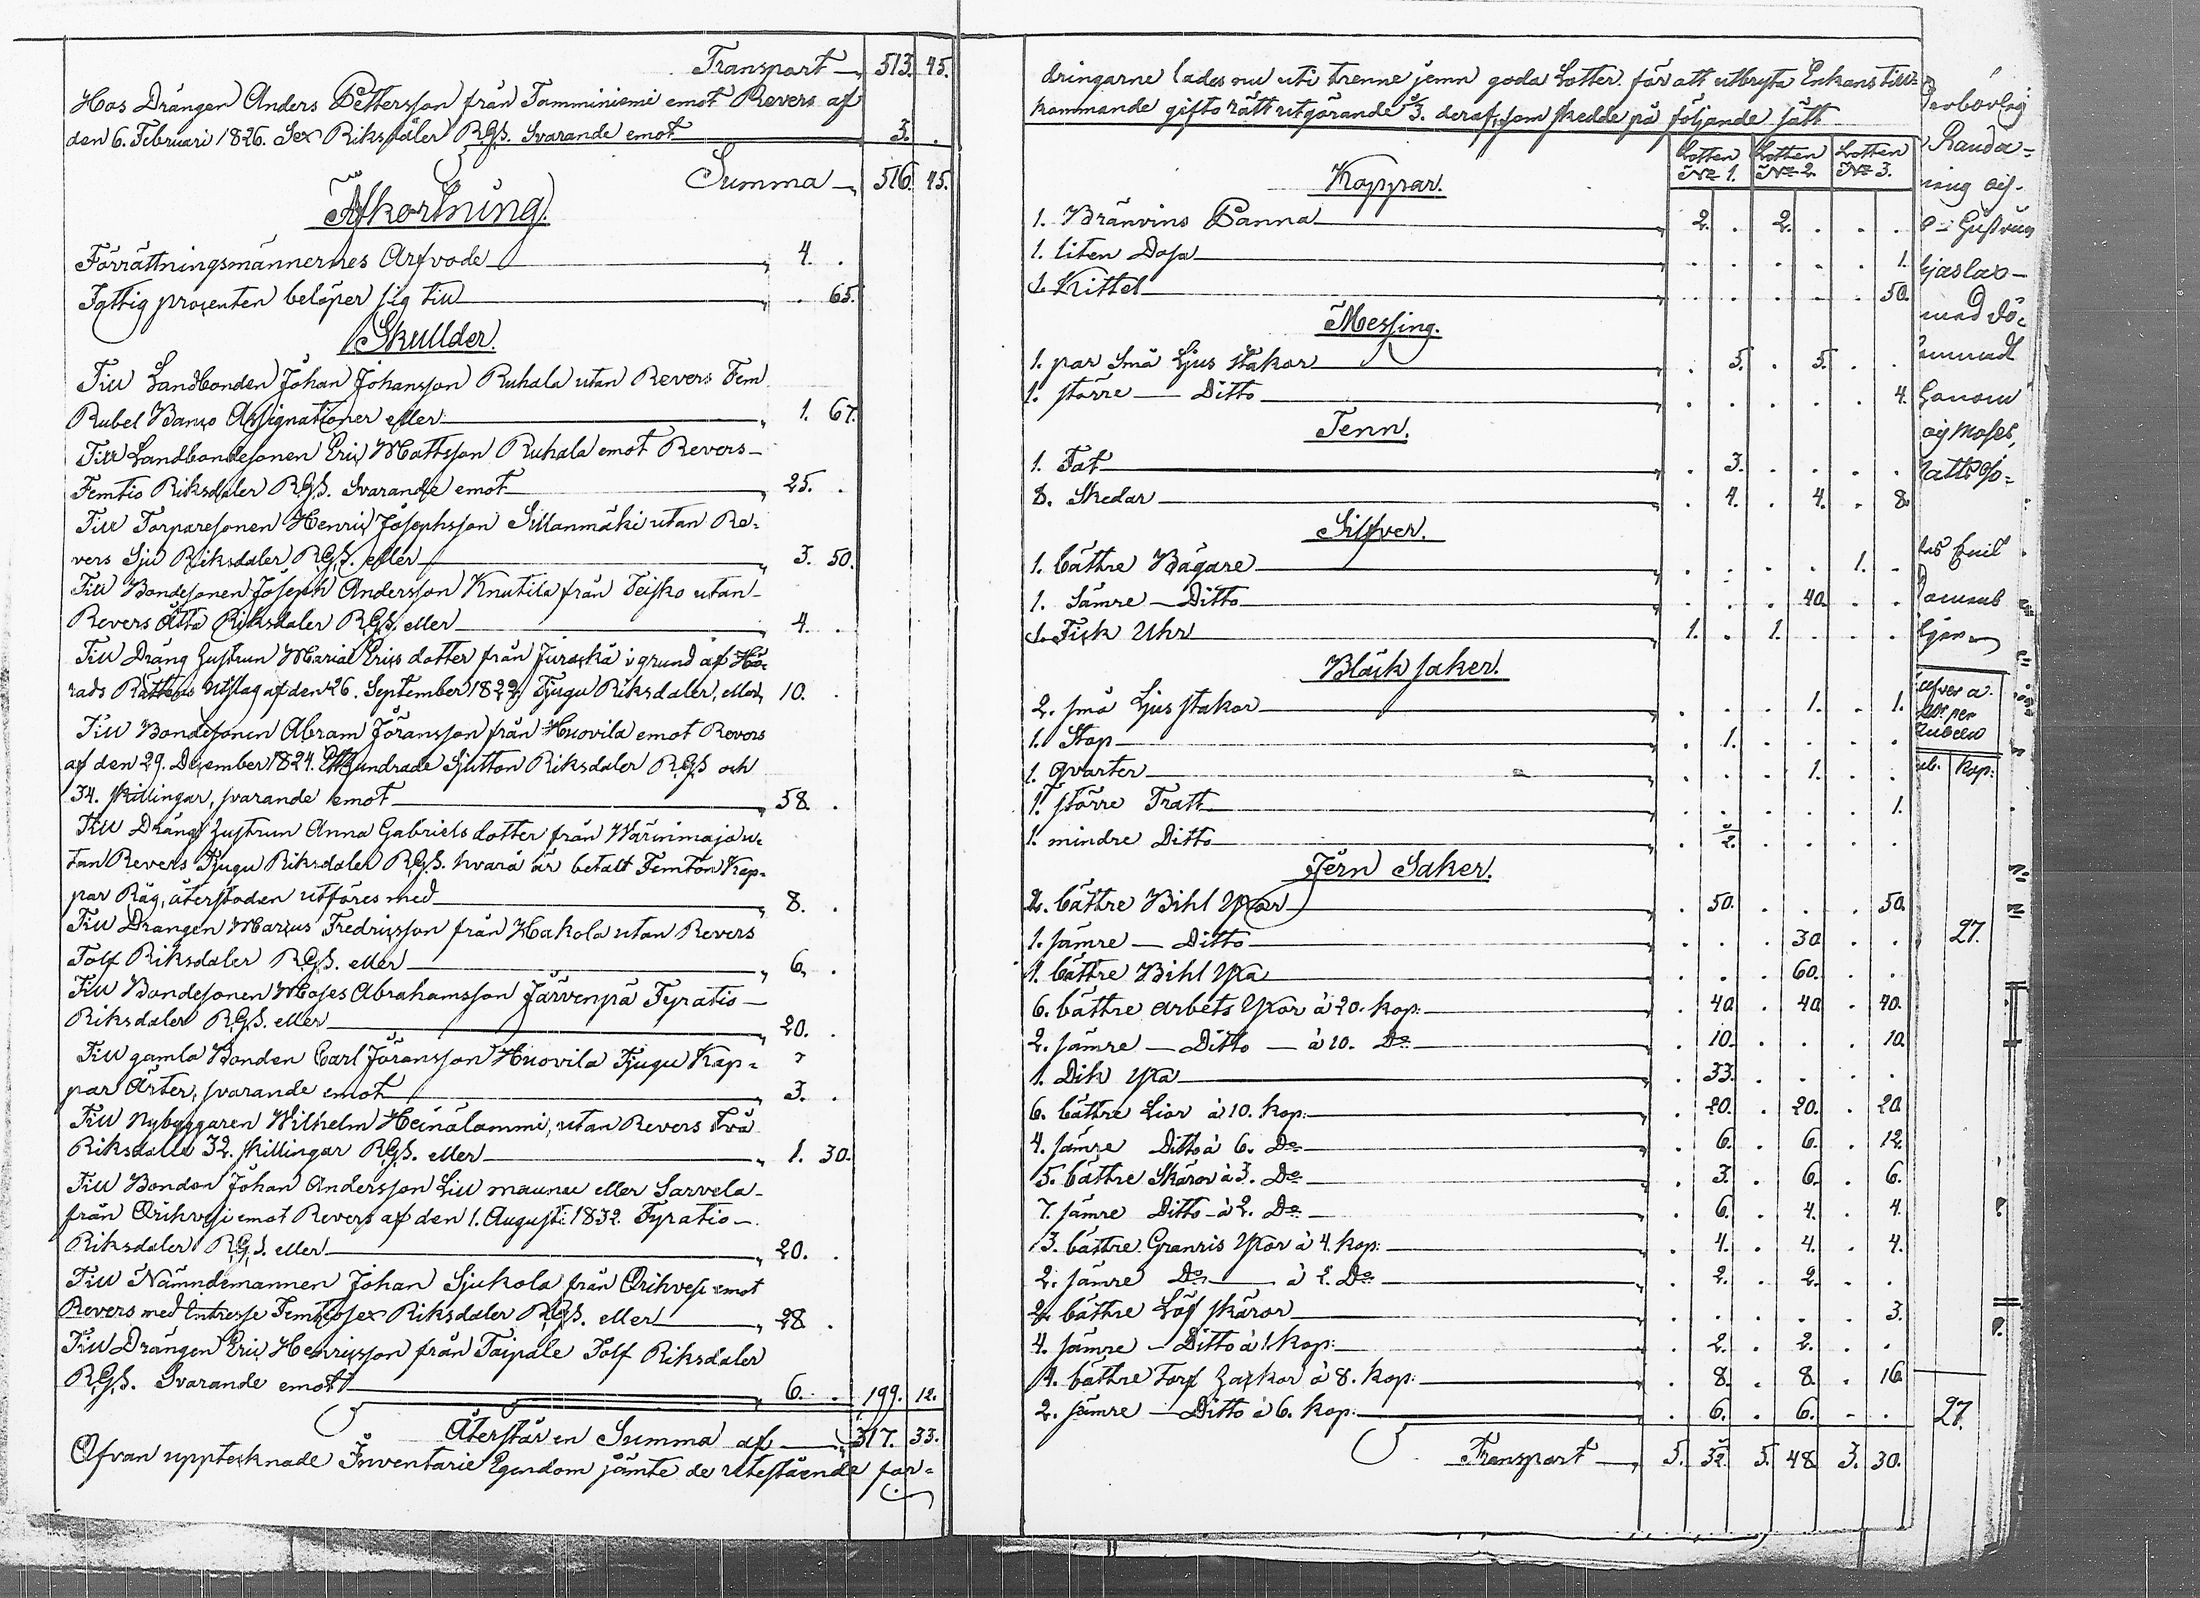 Transport 513. 45.
Hos Drängen Anders Pettersson från Tomminiemi emot Revers af
den 6. Februari 1826. Sex Riksdaler R.G.S. Svarande emot 3. .
Summa 516. 45.
Afkortning.
Förrättningsmännernes Arfvode 4. .
Fattig procenten belöper sig till . 65.
Skullder.
Till Landbonden Johan Johansson Ruhala utan Revers Fem
Rubel Banco Assignationer eller 1. 67.
Till Landbondesonen Eric Mattsson Ruhala emot Revers
Femtio Riksdaler R.G.S. Svarande emot 25. .
Till Torparesonen Henric Josephsson Sillanmäki utan Re-
vers Sju Riksdaler R.G.S. eller 3. 50.
Till Bondesonen Joseph Andersson Knutila från Teisko utan
Revers Åtta Riksdaler R.G.S. eller 4. .
Till Dräng hustrun Maria Erics dotter från i grund af Hä-
rads Rättens Utslag af den 26. September 1829, Tjugu Riksdaler, eller 10. .
Till Bondesonen Abram Jöransson från Huovila emot Revers
af den 29. December 1824. Etthundrade Sjutton Riksdaler R.G.S och
34. skillingar, svarande emot 58. .
Till Dräng hustrun Anna Gabriels dotter från Wärinmaja u-
tan Revers Tjugu Riksdaler R.G.S. hvarå är betalt Femton Kap-
par Råg, återstoden utföres med 8. .
Till Drängen Marcus Fredricsson från Hakola utan Revers
Tolf Riksdaler R.G.S. eller 6. .
Till Bondesonen Moses Abrahamsson Järvenpä Fyratio
Riksdaler R.G.S. eller 20. .
Till gamla Bonden Carl Jöransson Huovila Tjugu Kap-
par Ärter, svarande emot 3. .
Till Nybyggaren Wilhelm Heinälammi, utan Revers Två
Riksdaler 32. skillingar R.G.S. eller 1. 30.
Till Bonden Johan Andersson Lill maunu eller Sarvela
från Orihvesi emot Revers af den 1. Augusti 1832. Fyratio
Riksdaler R.G.S. eller 20. .
Till Nämndemannen Johan Sjukola från Orihvesi emot
Revers med Intresse Femtiosex Riksdaler R.G.S. eller 28. .
Till Drängen Eric Henricsson från Taipale Tolf Riksdaler
R.G.S. Svarande emot 6. . 199. 12.
Återstår en Summa af 317. 33.
Ofvan upptecknade Inventarie Egendom jämte de utestående for-
dringarne lades nu uti trenne jemn goda Lotter för att utbryta Enkans till-
kommande giftorätt utgörande 1/3. deraf, som skedde på följande sätt
Lotten No 1. Lotten No 2. Lotten No 3.
Koppar.
1. Bränvins Panna 2. . 2. . . .
1. liten Dosa . . . . . 1.
1. Kittel . . . . . 50.
Messing.
1. par små Ljus stakar . 5. . 5. . .
1. större Ditto . . . . . 4.
Tenn.
1. Fat . 3. . . . .
8. Skedar . 4. . 4. . 8.
Silfver.
1. bättre Bägare . . . . 1. .
1. Sämre Ditto . . . 40. . .
1. Fick Uhr 1. . 1. . . .
Bläck saker.
2. små Ljus stakar . . . 1. . 1.
1. Stop . 1. . . . .
1. qvarter . . . 1. . .
1. större Tratt . . . . . 1.
1. mindre Ditto . 1/2. . . . .
Jern Saker.
2. bättre Bihl Yxor . 50. . . . 50.
1. sämre Ditto . . . 30. . .
1. bättre Bihl Yxa . . . 60. . .
6. bättre arbets Yxor à 20. kop: . 40. . 40. . 40.
2. sämre Ditto à 10. Do . 10. . . . 10.
1. Dik yxa . 33. . . . .
6. bättre Liar à 10. kop: . 20. . 20. . 20.
4. sämre Ditto à 6. Do . 6. . 6. . 12.
5. bättre Skäror à 3. Do . 3. . 6. . 6.
7. sämre Ditto à 2. Do . 6. . 4. . 4.
3. bättre Granris Yxor à 4. kop: . 4. . 4. . 4.
2. sämre Do à 2. Do . 2. . 2. . .
2. bättre Löf skäror . . . . . 3.
4. sämre Ditto à 1 kop: . 2. . 2. . .
4. bättre Torf hackor à 8. kop: . 8. . 8. . 16.
2. sämre Ditto à 6. kop: . 6. . 6. . .
Transport 5. 3 1/2. 5. 48. 3. 30.
Randa-
Hustrun
Ganom
og Moses,
per
Kop:
27.
27.